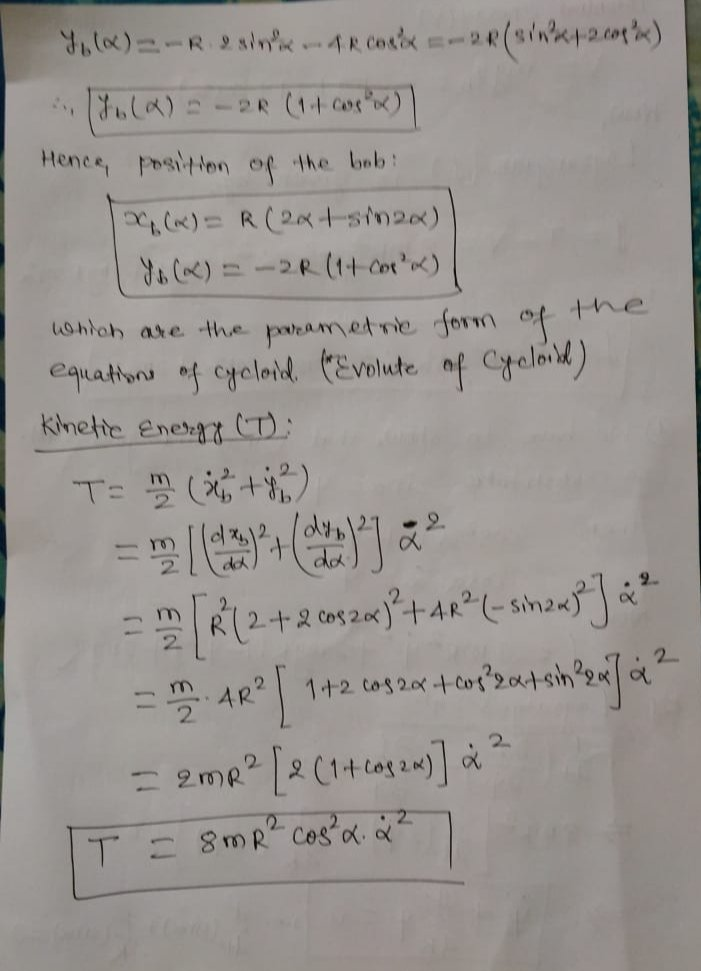 y_b(α) = -R·2 sin²α - 4R cos²α = -2R(sin²α+2cos²α)
∴, y_b(α) = -2R (1+cos²α)
Hence, position of the bob:
x_b(α) = R(2α+sin2α)
y_b(α) = -2R(1+cos²α)
which are the parametric form of the
equations of cycloid. (*Evolute of Cycloid)
Kinetic Energy (T):
T = m/2 (ẋ_b² + ẏ_b²)
= m/2 [(dx_b/dα)² + (dy_b/dα)²] α̇²
= m/2 [R²(2+2cos2α)² + 4R²(-sin2α)²] α̇²
= m/2 · 4R² [1+2cos2α+cos²2α+sin²2α] α̇²
= 2mR² [2(1+cos2α)] α̇²
T = 8mR² cos²α. α̇²